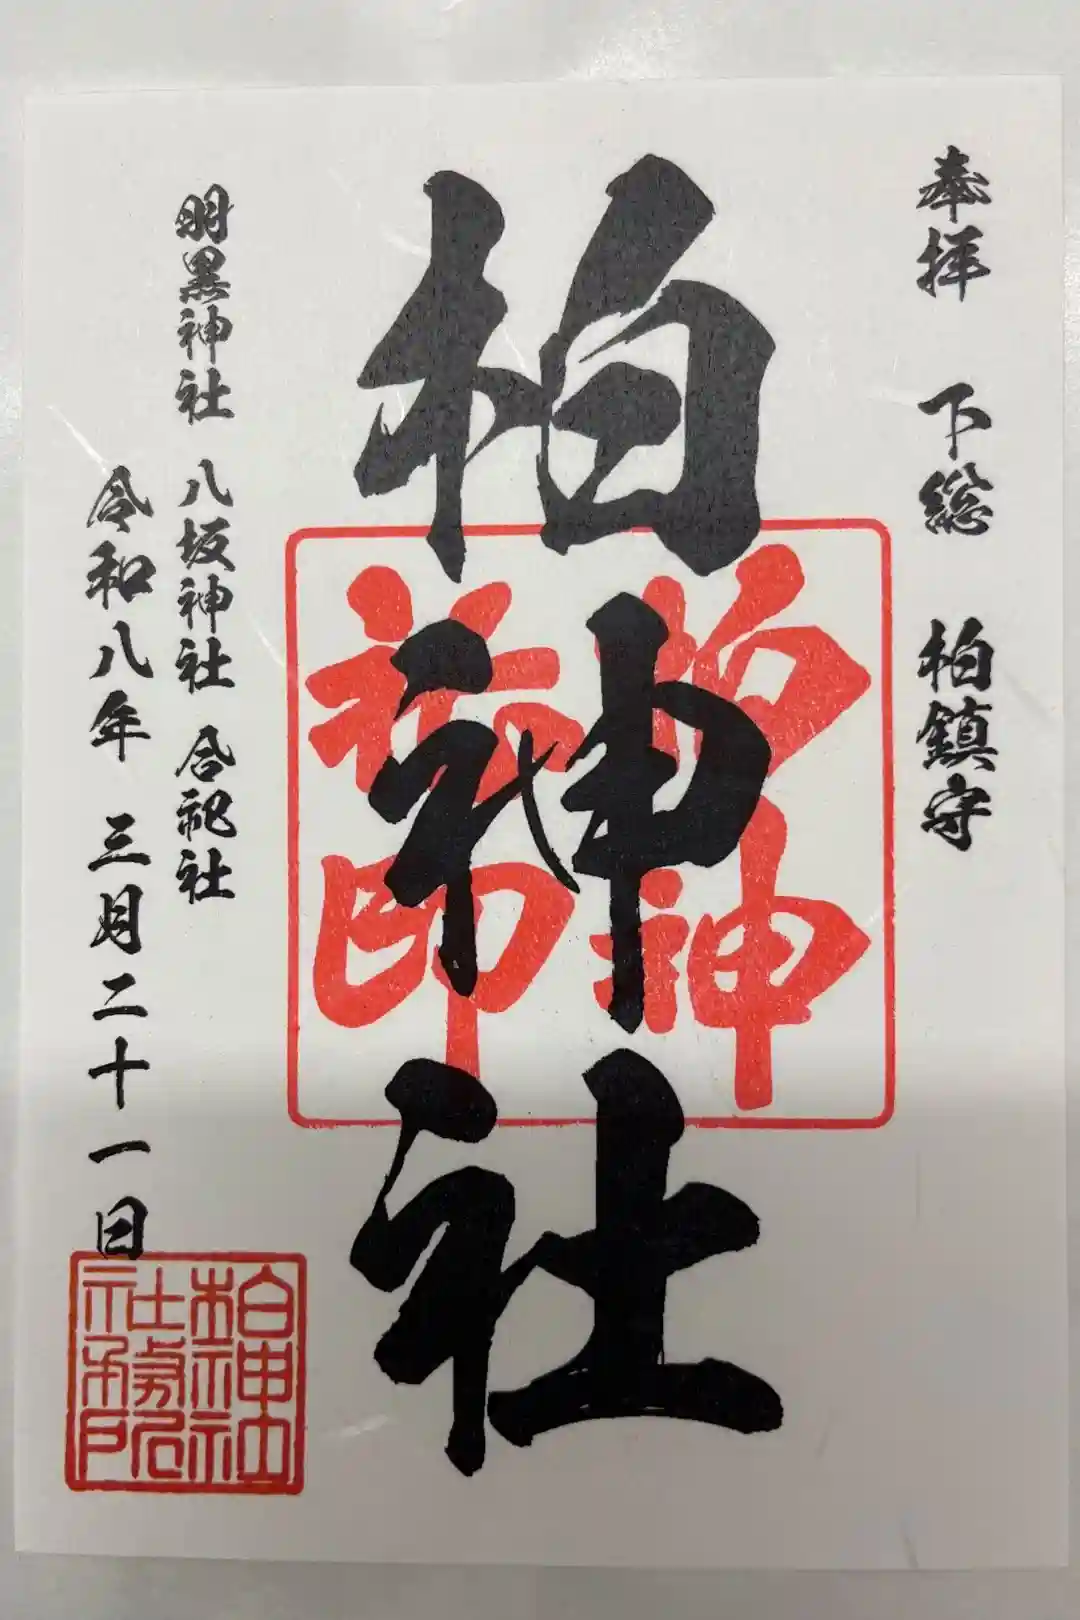 奉拝 下総 柏鎮守
柏神社
柏神
社印
羽黒神社 八坂神社 合祀社
令和八年 三月二十一日
柏神社
社務所